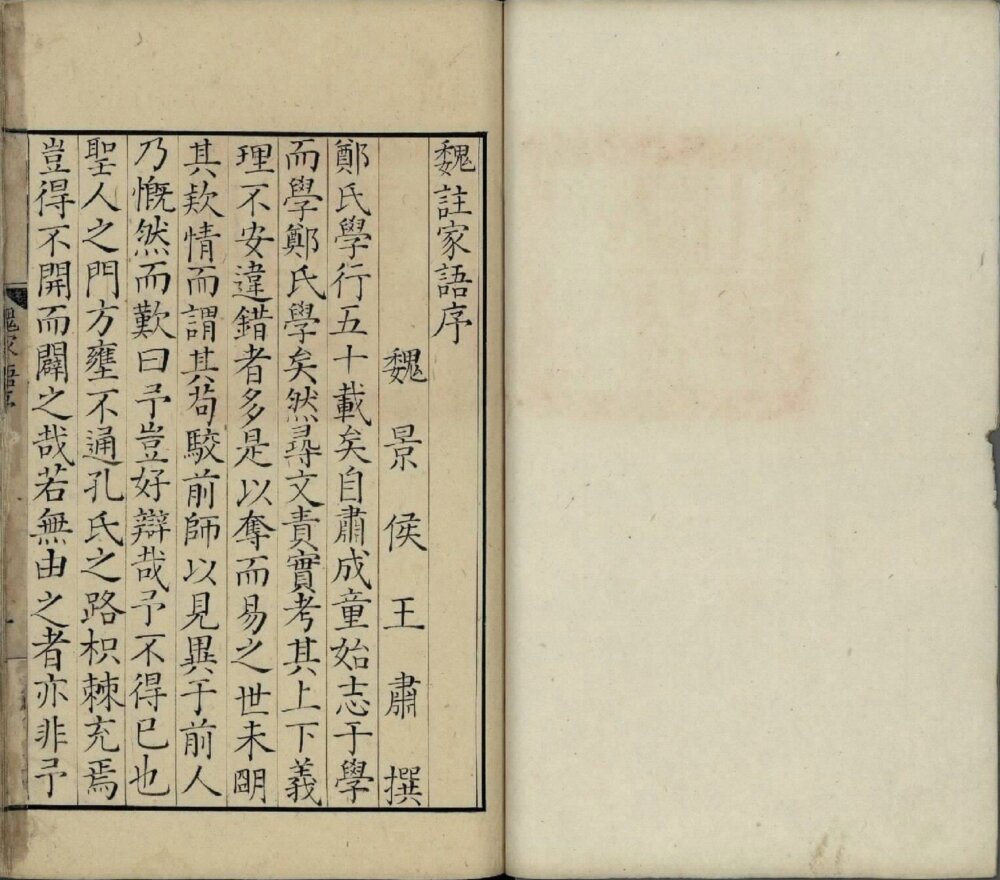 魏註家語序
魏景侯王肅撰
鄭氏學行五十載矣自肅成童始志于學
而學鄭氏學矣然尋文責實考其上下義
理不安違錯者多是以奪而易之世未明
其欵情而謂其苟駮前師以見異于前人
乃慨然而歎曰予豈好辯哉予不得已也
聖人之門方壅不通孔氏之路枳棘充焉
豈得不開而闢之哉若無由之者亦非予